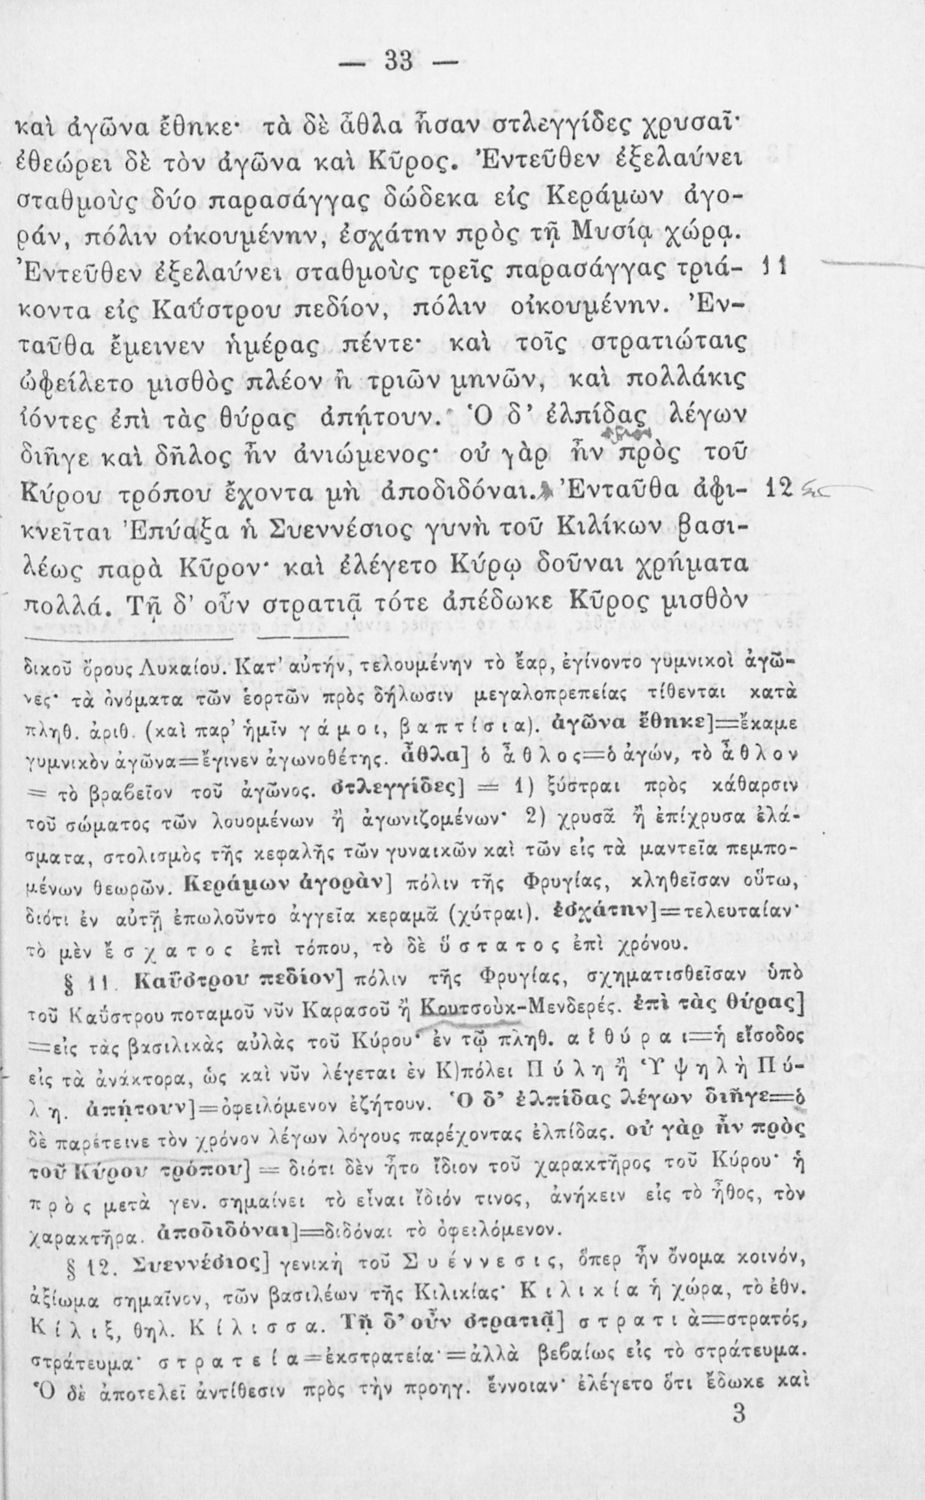 — 33 —
καὶ ἀγῶνα ἔθηκε· τὰ δὲ ἆθλα ἦσαν στλεγγίδες χρυσαῖ·
ἐθεώρει δὲ τὸν ἀγῶνα καὶ Κῦρος. Ἐντεῦθεν ἐξελαύνει
σταθμοὺς δύο παρασάγγας δώδεκα εἰς Κεράμων ἀγο-
ράν, πόλιν οἰκουμένην, ἐσχάτην πρὸς τῇ Μυσίᾳ χώρᾳ.
Ἐντεῦθεν ἐξελαύνει σταθμοὺς τρεῖς παρασάγγας τριά- 11
κοντα εἰς Καΰστρου πεδίον, πόλιν οἰκουμένην. Ἐν-
ταῦθα ἔμεινεν ἡμέρας πέντε· καὶ τοῖς στρατιώταις
ὠφείλετο μισθὸς πλέον ἢ τριῶν μηνῶν, καὶ πολλάκις
ἰόντες ἐπὶ τὰς θύρας ἀπῄτουν. Ὁ δ’ ἐλπίδας λέγων
διῆγε καὶ δῆλος ἦν ἀνιώμενος· οὐ γὰρ ἦν πρὸς τοῦ
Κύρου τρόπου ἔχοντα μὴ ἀποδιδόναι. Ἐνταῦθα ἀφι- 12
κνεῖται Ἐπύαξα ἡ Συεννέσιος γυνὴ τοῦ Κιλίκων βασι-
λέως παρὰ Κῦρον· καὶ ἐλέγετο Κύρῳ δοῦναι χρήματα
πολλά. Τῇ δ’ οὖν στρατιᾷ τότε ἀπέδωκε Κῦρος μισθὸν
δικοῦ ὄρους Λυκαίου. Κατ’ αὐτήν, τελουμένην τὸ ἔαρ, ἐγίνοντο γυμνικοὶ ἀγῶ-
νες· τὰ ὀνόματα τῶν ἑορτῶν πρὸς δήλωσιν μεγαλοπρεπείας τίθενται κατὰ
πληθ. ἀριθ. (καὶ παρ’ ἡμῖν γάμοι, βαπτίσια). ἀγῶνα ἔθηκε]=ἔκαμε
γυμνικὸν ἀγῶνα=ἔγινεν ἀγωνοθέτης. ἆθλα] ὁ ἆθλος=ὁ ἀγών, τὸ ἆθλον
= τὸ βραβεῖον τοῦ ἀγῶνος. στλεγγίδες] = 1) ξύστραι πρὸς κάθαρσιν
τοῦ σώματος τῶν λουομένων ἢ ἀγωνιζομένων· 2) χρυσᾶ ἢ ἐπίχρυσα ἐλά-
σματα, στολισμὸς τῆς κεφαλῆς τῶν γυναικῶν καὶ τῶν εἰς τὰ μαντεῖα πεμπο-
μένων θεωρῶν. Κεράμων ἀγορὰν] πόλιν τῆς Φρυγίας, κληθεῖσαν οὕτω,
διότι ἐν αὐτῇ ἐπωλοῦντο ἀγγεῖα κεραμᾶ (χύτραι). ἐσχάτην]=τελευταίαν·
τὸ μὲν ἔσχατος ἐπὶ τόπου, τὸ δὲ ὕστατος ἐπὶ χρόνου.
§ 11. Καΰστρου πεδίον] πόλιν τῆς Φρυγίας, σχηματισθεῖσαν ὑπὸ
τοῦ Καΰστρου ποταμοῦ νῦν Καρασοῦ ἢ Κουτσοὺκ-Μενδερές. ἐπὶ τὰς θύρας]
=εἰς τὰς βασιλικὰς αὐλὰς τοῦ Κύρου· ἐν τῷ πληθ. αἱ θύραι=ἡ εἴσοδος
εἰς τὰ ἀνάκτορα, ὡς καὶ νῦν λέγεται ἐν Κ)πόλει Πύλη ἢ Ὑψηλὴ Πύ-
λη. ἀπῄτουν]=ὀφειλόμενον ἐζήτουν. Ὁ δ’ ἐλπίδας λέγων διῆγε=ὁ
δὲ παρέτεινε τὸν χρόνον λέγων λόγους παρέχοντας ἐλπίδας. οὐ γὰρ ἦν πρὸς
τοῦ Κύρου τρόπου] = διότι δὲν ἦτο ἴδιον τοῦ χαρακτῆρος τοῦ Κύρου· ἡ
πρὸς μετὰ γεν. σημαίνει τὸ εἶναι ἴδιόν τινος, ἀνήκειν εἰς τὸ ἦθος, τὸν
χαρακτῆρα. ἀποδιδόναι]=διδόναι τὸ ὀφειλόμενον.
§ 12. Συεννέσιος] γενικὴ τοῦ Συέννεσις, ὅπερ ἦν ὄνομα κοινόν,
ἀξίωμα σημαῖνον, τῶν βασιλέων τῆς Κιλικίας· Κιλικία ἡ χώρα, τὸ ἐθν.
Κίλιξ, θηλ. Κίλισσα. Τῇ δ’ οὖν στρατιᾷ] στρατιὰ=στρατός,
στράτευμα· στρατεία=ἐκστρατεία·=ἀλλὰ βεβαίως εἰς τὸ στράτευμα.
Ὁ δὲ ἀποτελεῖ ἀντίθεσιν πρὸς τὴν προηγ. ἔννοιαν· ἐλέγετο ὅτι ἔδωκε καὶ
3